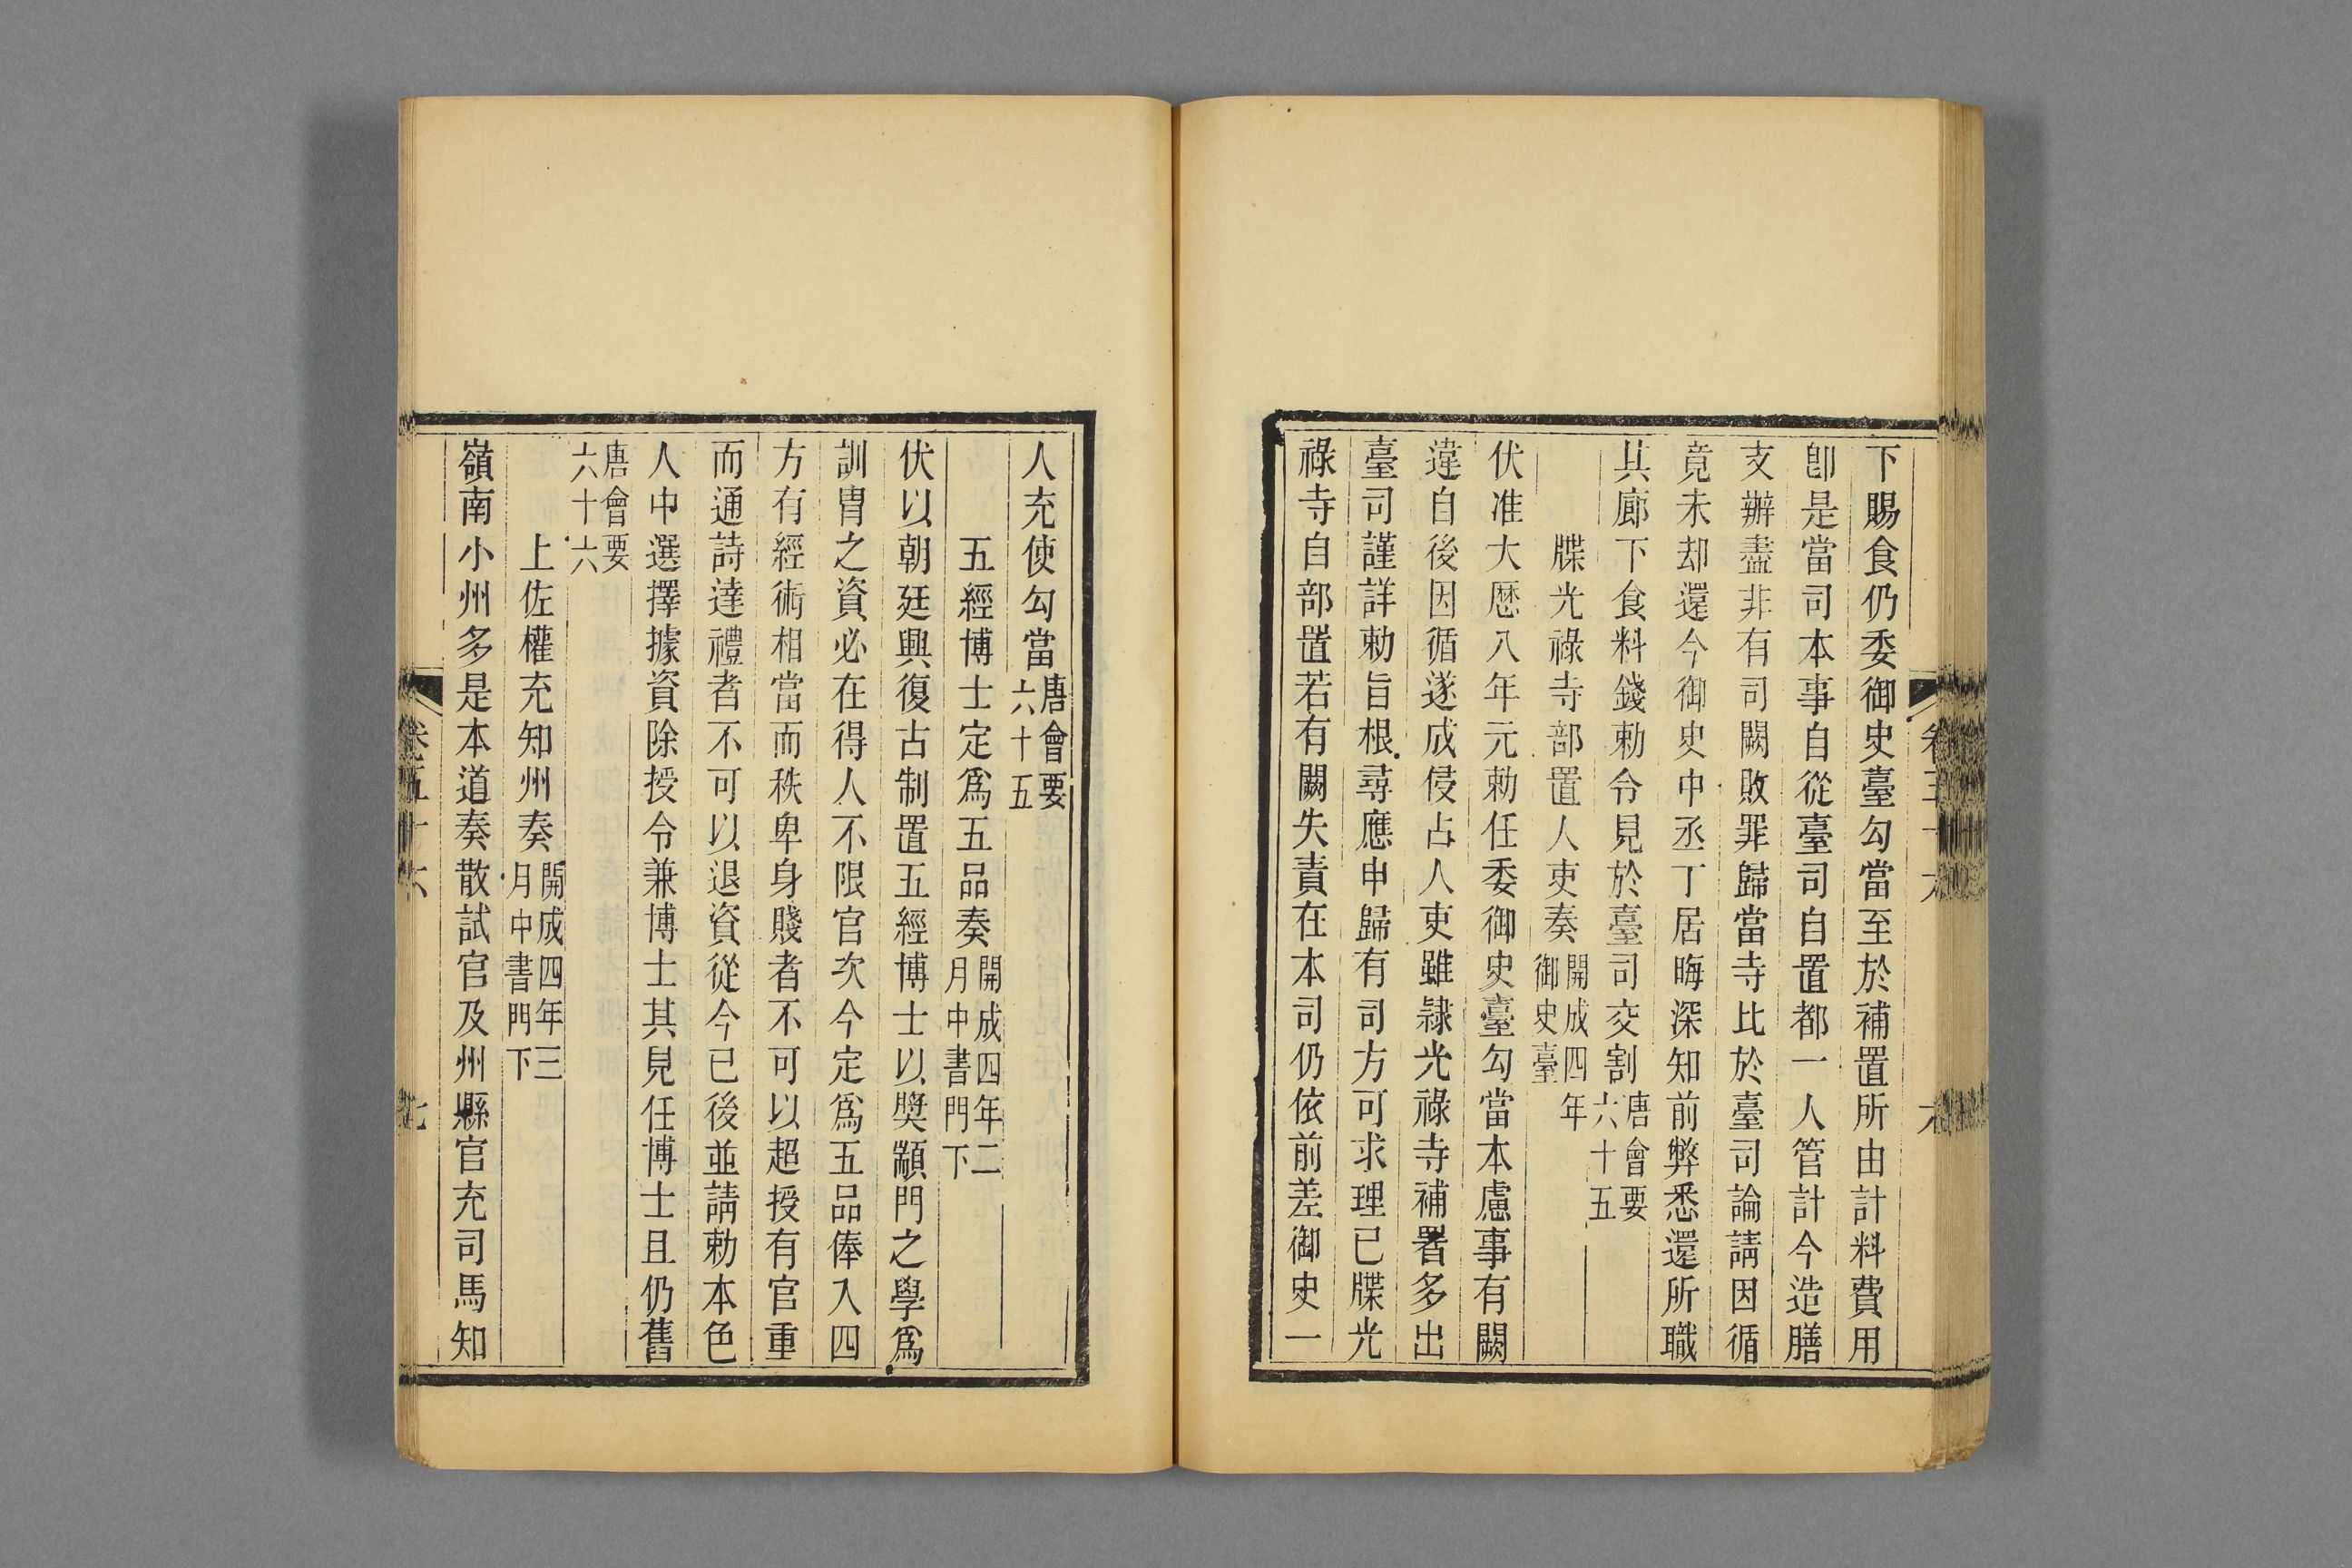 下賜食仍委御史臺勾當至於補置所由計料費用
卽是當司本事自從臺司自置都一人管計今造膳
支辦盡非有司闕敗罪歸當寺比於臺司論請因循
竟未却還今御史中丞丁居晦深知前弊悉還所職
其廊下食料錢勅令見於臺司交割唐會要六十五
牒光祿寺部置人吏奏開成四年御史臺
伏准大曆八年元勅任委御史臺勾當本慮事有闕
違自後因循遂成侵占人吏雖隸光祿寺補署多出
臺司謹詳勅旨根尋應申歸有司方可求理已牒光
祿寺自部置若有闕失責在本司仍依前差御史一
人充使勾當唐會要六十五
五經博士定爲五品奏開成四年二月中書門下
伏以朝廷興復古制置五經博士以奬顓門之學爲
訓胄之資必在得人不限官次今定爲五品俸入四
方有經術相當而秩卑身賤者不可以超授有官重
而通詩達禮者不可以退資從今已後並請勅本色
人中選擇據資除授令兼博士其見任博士且仍舊
唐會要六十六
上佐權充知州奏開成四年三月中書門下
嶺南小州多是本道奏散試官及州縣官充司馬知
卷五十六
七